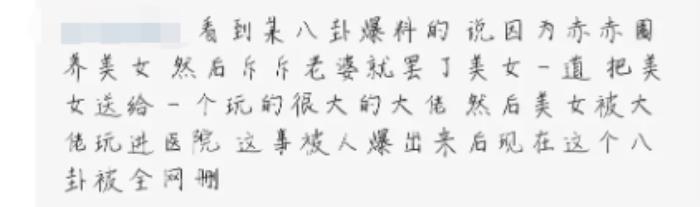 看到某八卦爆料的 说因为赤赤圈
养美女 然后斥斥老婆就罢了美女一道 把美
女送给一个玩的很大的大佬 然后美女被大
佬玩进医院 这事被人爆出来后现在这个八
卦被全网删